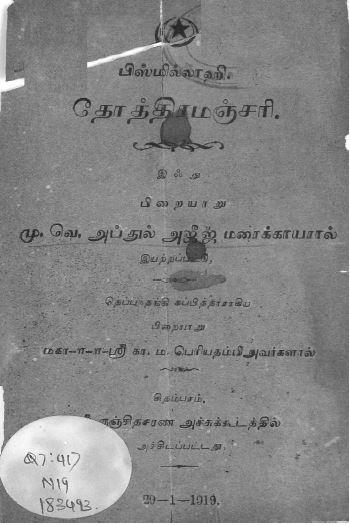 பிஸ்மில்லாஹி.
தோத்திரமஞ்சரி.
இஃது
பிறையாறு
மு. வெ. அப்துல் அஜீஜ் மரைக்காயரால்
இயற்றப்பட்டு,
பிறையாறு
மகா-ா-ா-ஸ்ரீ கா. ம. பெரியதம்பிஅவர்களால்
சிதம்பரம்,
அச்சுக்கூடத்தில்
அச்சிடப்பட்டது.
29-1-1919.
Q7:417
N19
183493.